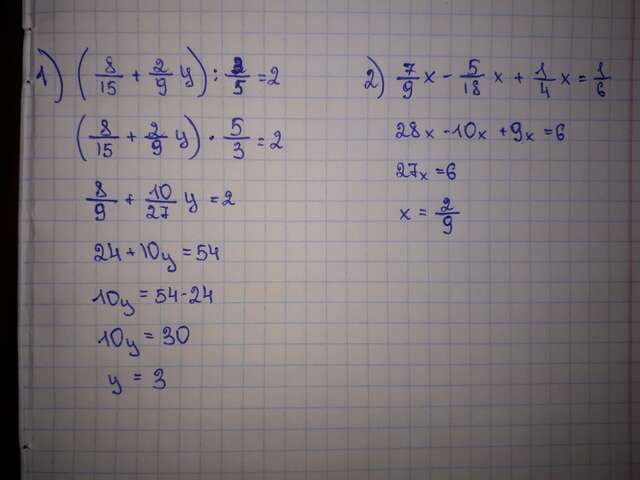 1) (8/15 + 2/9 y) : 3/5 = 2
(8/15 + 2/9 y) · 5/3 = 2
8/9 + 10/27 y = 2
24 + 10y = 54
10y = 54 - 24
10y = 30
y = 3
2) 7/9 x - 5/18 x + 1/4 x = 1/6
28x - 10x + 9x = 6
27x = 6
x = 2/9